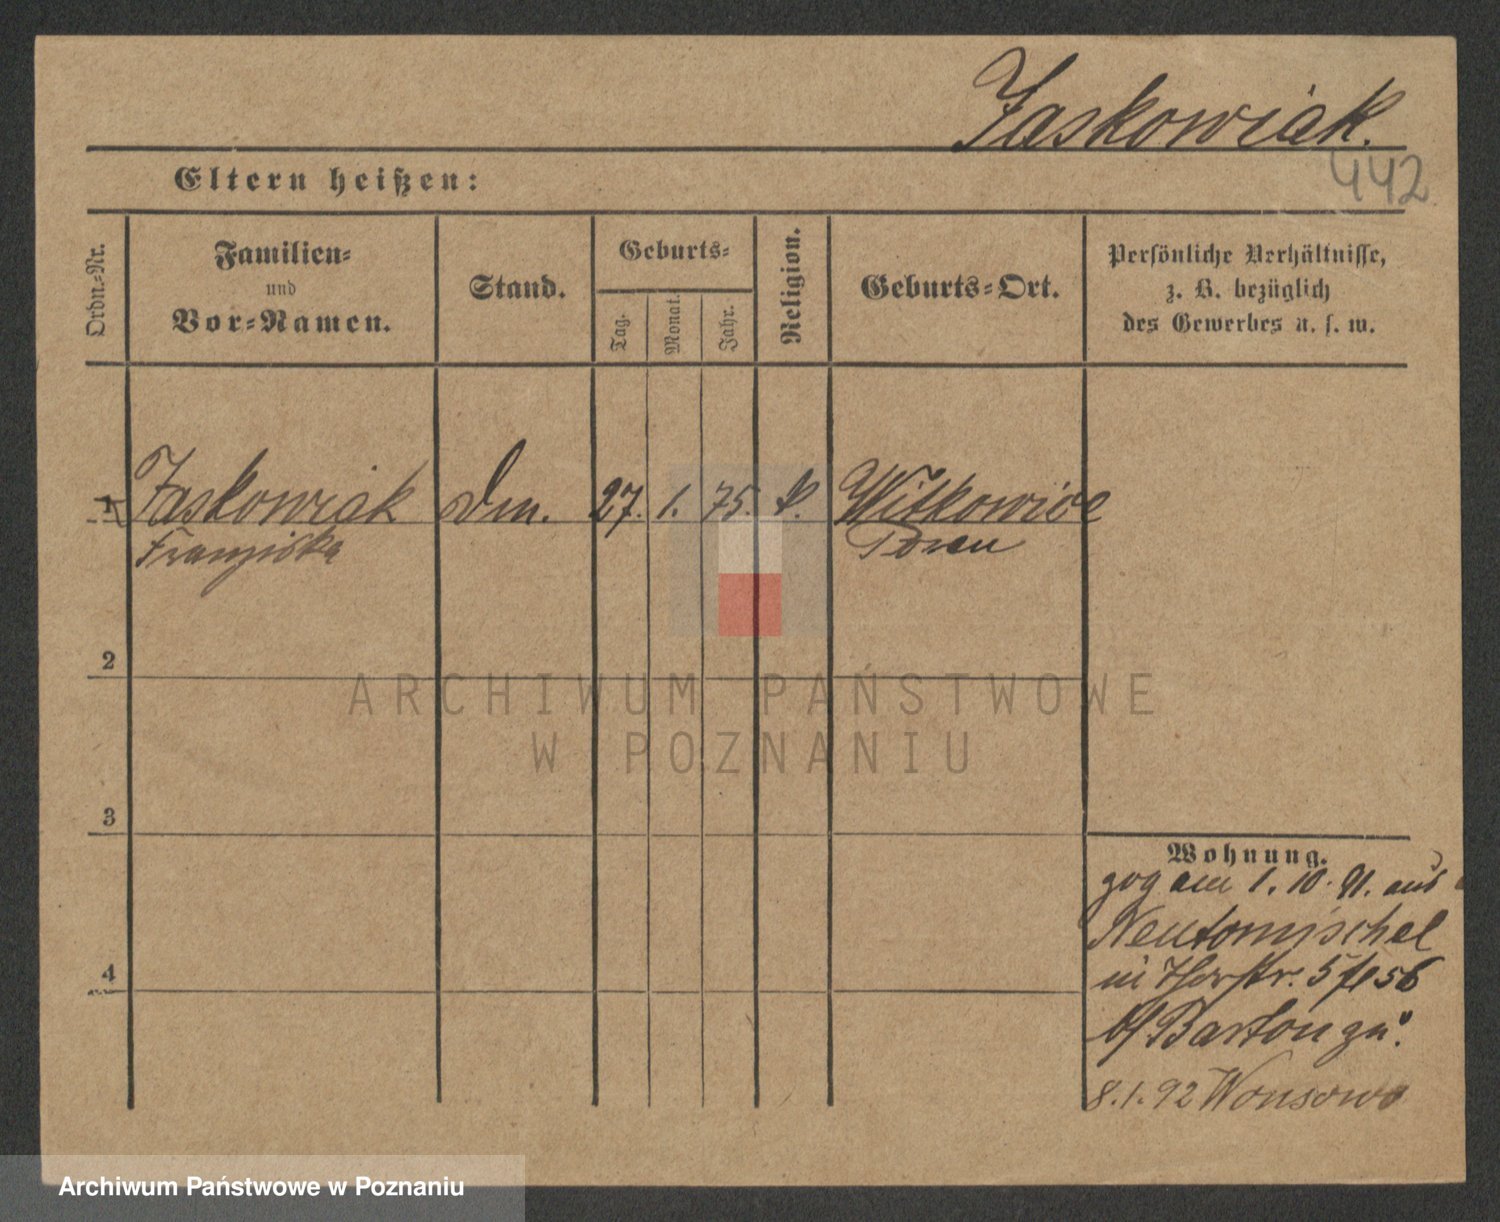 Jaskowiak.
442
Eltern heißen:
Ordn.-Nr.
Familien-
und
Vor-Namen.
Stand.
Geburts-
Tag.
Monat.
Jahr.
Religion.
Geburts-Ort.
Persönliche Verhältnisse,
z. B. bezüglich
des Gewerbes u. s. w.
1 Jaskowiak 27. 1. 75. k. Witkowice
Franziska Posen
2
ARCHIWUM PAŃSTWOWE
W POZNANIU
3
Wohnung.
zog am 1. 10. 91. aus
Neutomischel
in 5
b/ Barton zu.
4
8.1.92 Wonsowo
Archiwum Państwowe w Poznaniu